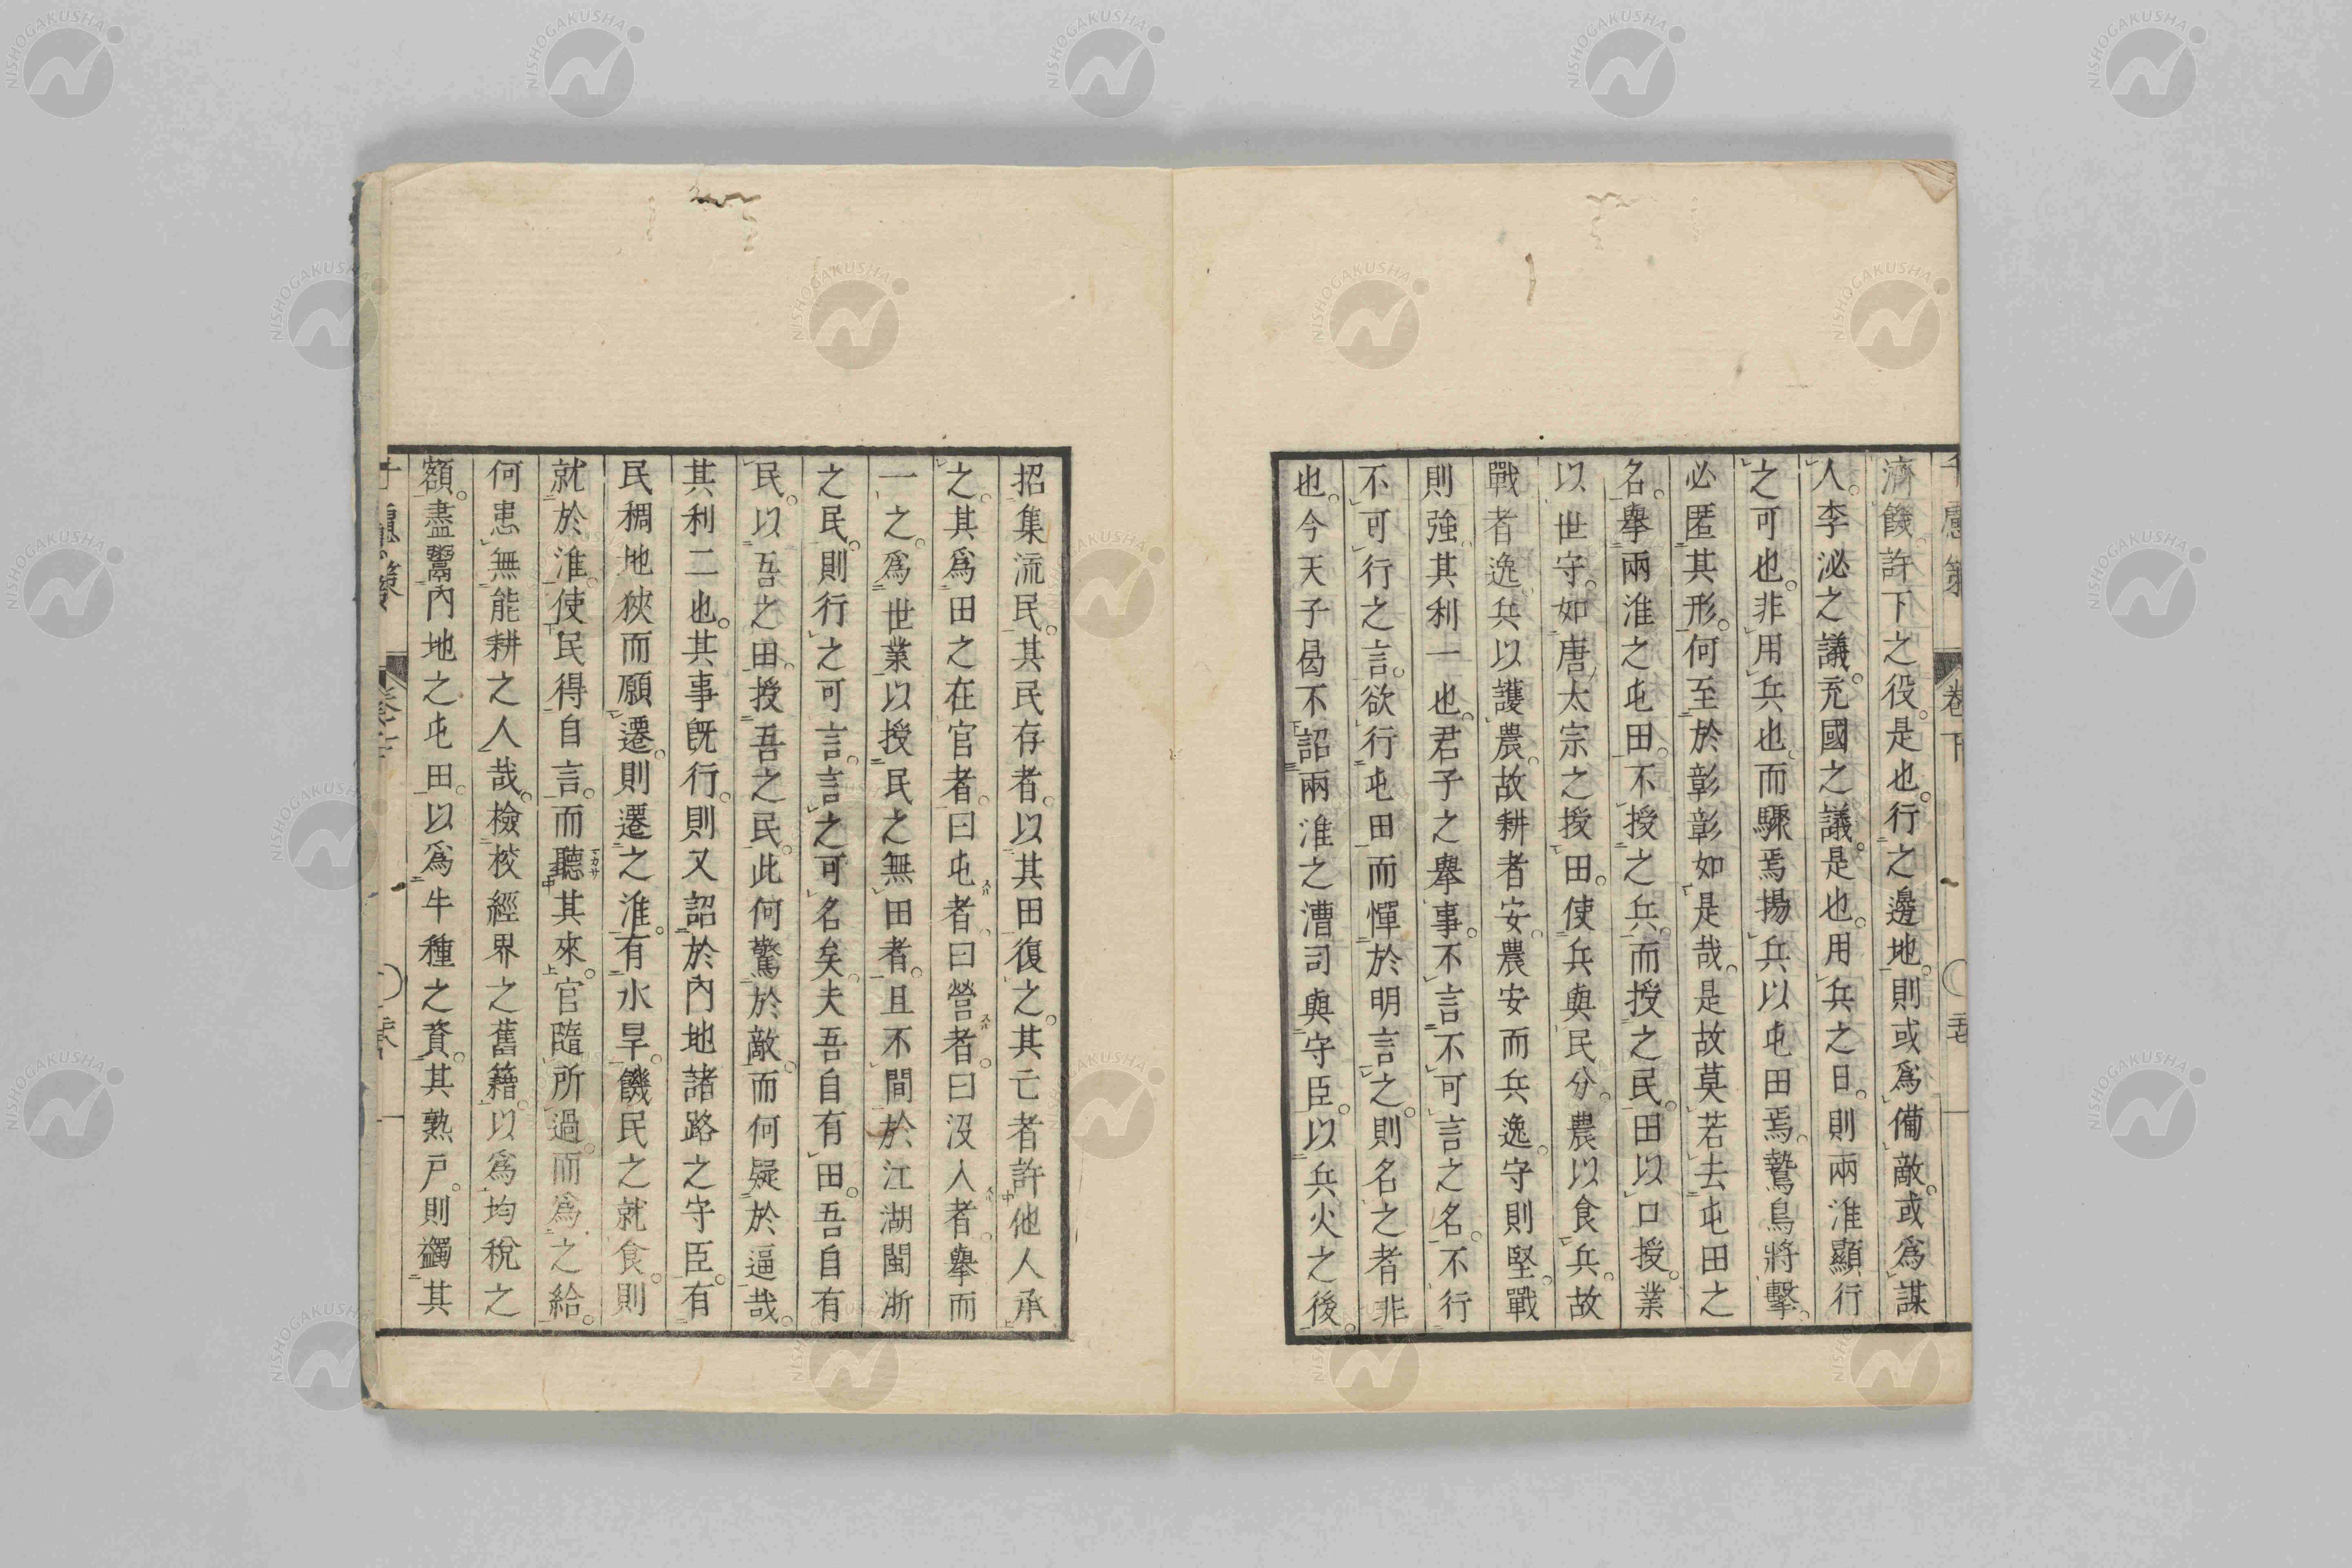 濟饑許下之役是也行之邊地則或爲備敵或爲謀
人李泌之議充國之議是也用兵之日則兩淮顯行
之可也非用兵也而驟焉揚兵以屯田焉鷙鳥將擊
必匿其形何至於彰彰如是哉是故莫若去屯田之
名舉兩淮之屯田不授之兵而授之民田以口授業
以世守如唐太宗之授田使兵與民分農以食兵故
戰者逸兵以護農故耕者安農安而兵逸守則堅戰
則強其利一也君子之舉事不言不可言之名不行
不可行之言欲行屯田而憚於明言之則名之者非
也今天子曷不詔兩淮之漕司與守臣以兵火之後
招集流民其民存者以其田復之其亡者許他人承
之其爲田之在官者曰屯者曰營者曰沒入者擧而
一之爲世業以授民之無田者且不間於江湖閩浙
之民則行之可言言之可名矣夫吾自有田吾自有
民以吾之田授吾之民此何驚於敵而何疑於逼哉
其利二也其事旣行則又詔於內地諸路之守臣有
民稠地狹而願遷則遷之淮有水旱饑民之就食則
就於淮使民得自言而聽其來官隨所過而爲之給
何患無能耕之人哉檢校經界之舊籍以爲均稅之
額盡鬻內地之屯田以爲牛種之資其熟戸則蠲其